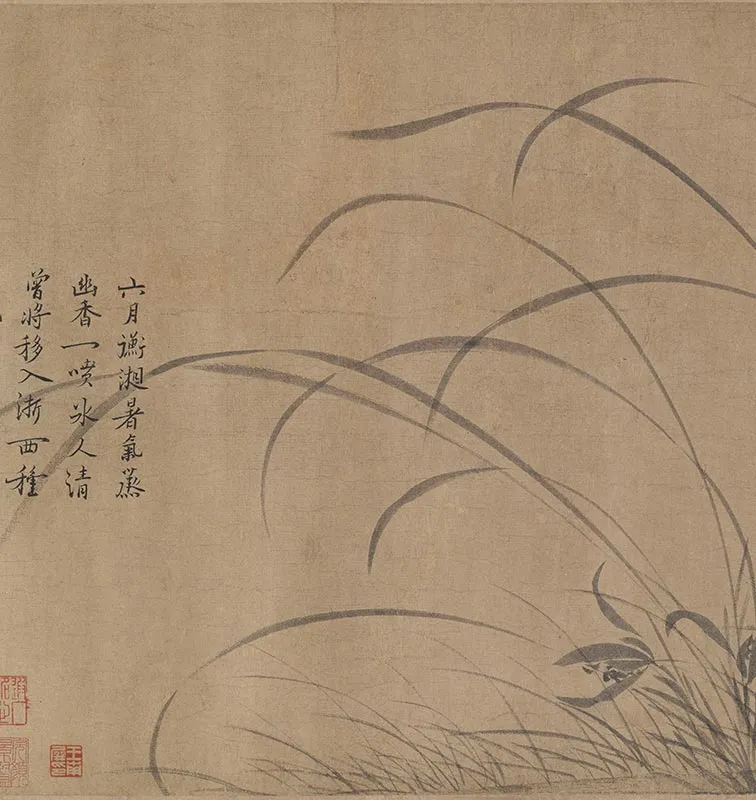 六月衡湘暑氣蒸
幽香一噴冰人清
曾將移入浙西種